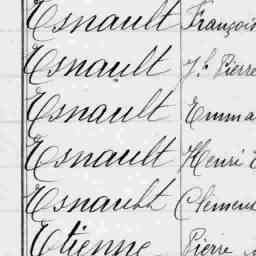 Esnault François
Esnault Jh Pierre
Esnault Emma
Esnault Henri
Esnault
Esnault
Etienne Pierre